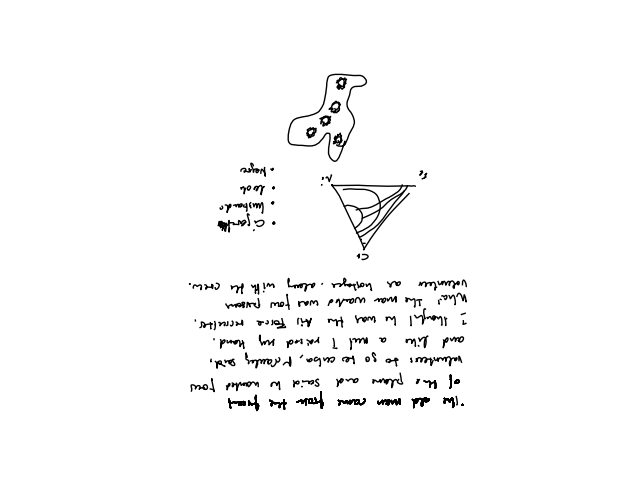 "The old man came from the front
of the plane and said he wanted four
volunteers to go to cuba, said,
and like a nut I raised my hand.
I thought he was the Air Force recruiter.
What the man wanted was four persons
volunteer as hostages. along with the crew.
Cr
• husbands
• Lead
Ni Fe